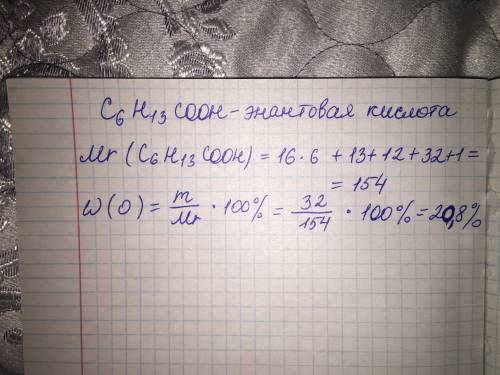 C₆H₁₃COOH - энантовая кислота
Mr (C₆H₁₃COOH) = 16·6 + 13 + 12 + 32 + 1 =
= 154
W(O) = m/Mr · 100% = 32/154 · 100% = 20,8%